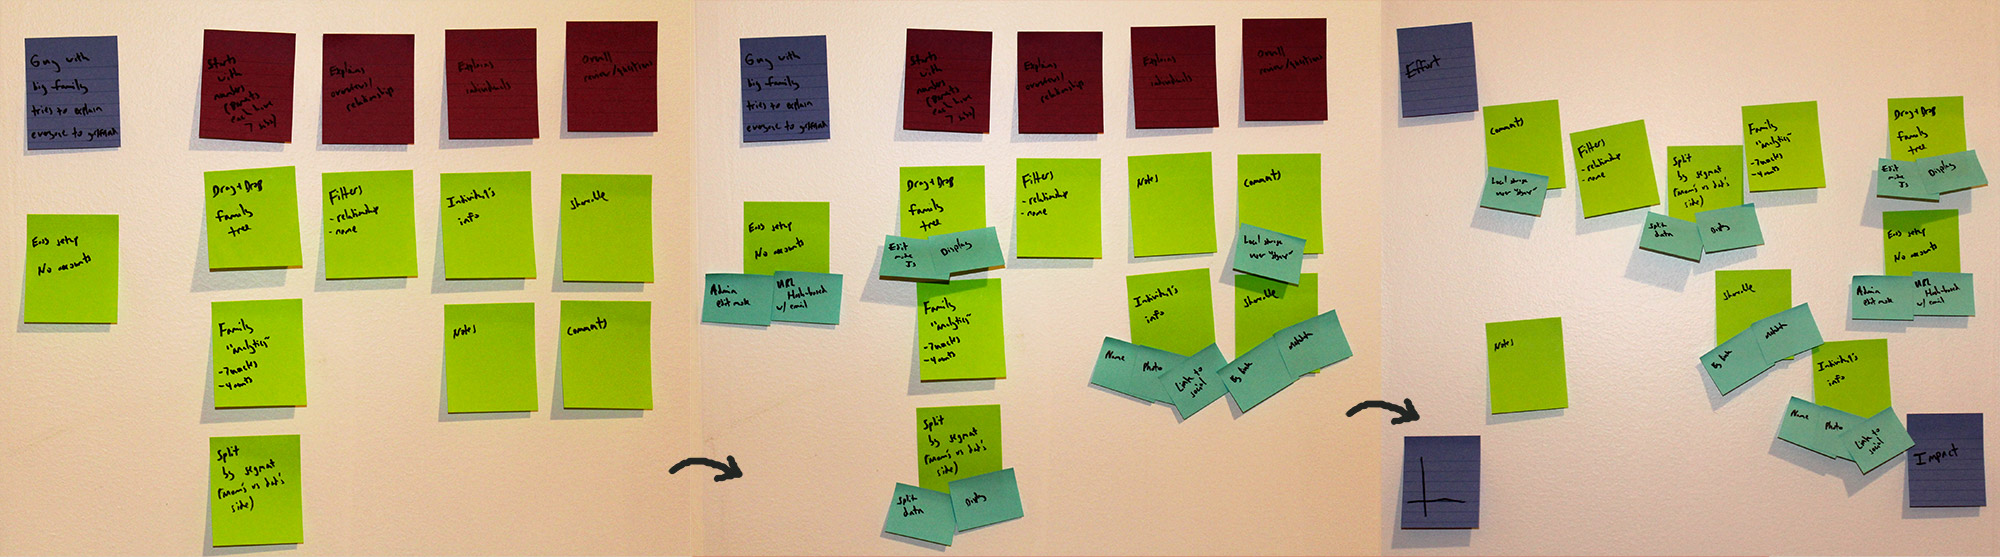 Guy with
big family
tries to explain
everyone to girlfriend
Starts
with
number
(Parents
each have
7 sibs)
Explains
overview/
relationship
Explains
individuals
Overall
review/questions
Easy setup
No accounts
Drag + Drop
family
tree
Filters
- relationship
- name
Individual's
info
Shareable
Family
"analytics"
- 7 uncles
- 4 aunts
Notes
Comments
Split
by segment
(Mom's vs dad's
side)
Guy with
big family
tries to explain
everyone to girlfriend
Starts
with
number
(Parents
each have
7 sibs)
Explains
overview/
relationship
Explains
individuals
Overall
review/questions
Easy setup
No accounts
Admin
edit mode
URL
w/ email
Drag + Drop
family
tree
Edit
mode
JS
Display
Filters
- relationship
- name
Notes
Comments
Local storage
Family
"analytics"
- 7 uncles
- 4 aunts
Individual's
info
Name
Photo
Link to
social
Shareable
Metadata
Split
by segment
(Mom's vs dad's
side)
Split
data
Display
Effort
Comments
Local storage
Filters
- relationship
- name
Split
by segment
(Mom's vs dad's
side)
Split
data
Display
Family
"analytics"
- 7 uncles
- 4 aunts
Drag + Drop
family
tree
Edit
mode
JS
Display
Easy setup
No accounts
Admin
edit mode
URL
w/ email
Notes
Shareable
Metadata
Individual's
info
Name
Photo
Link to
social
Impact